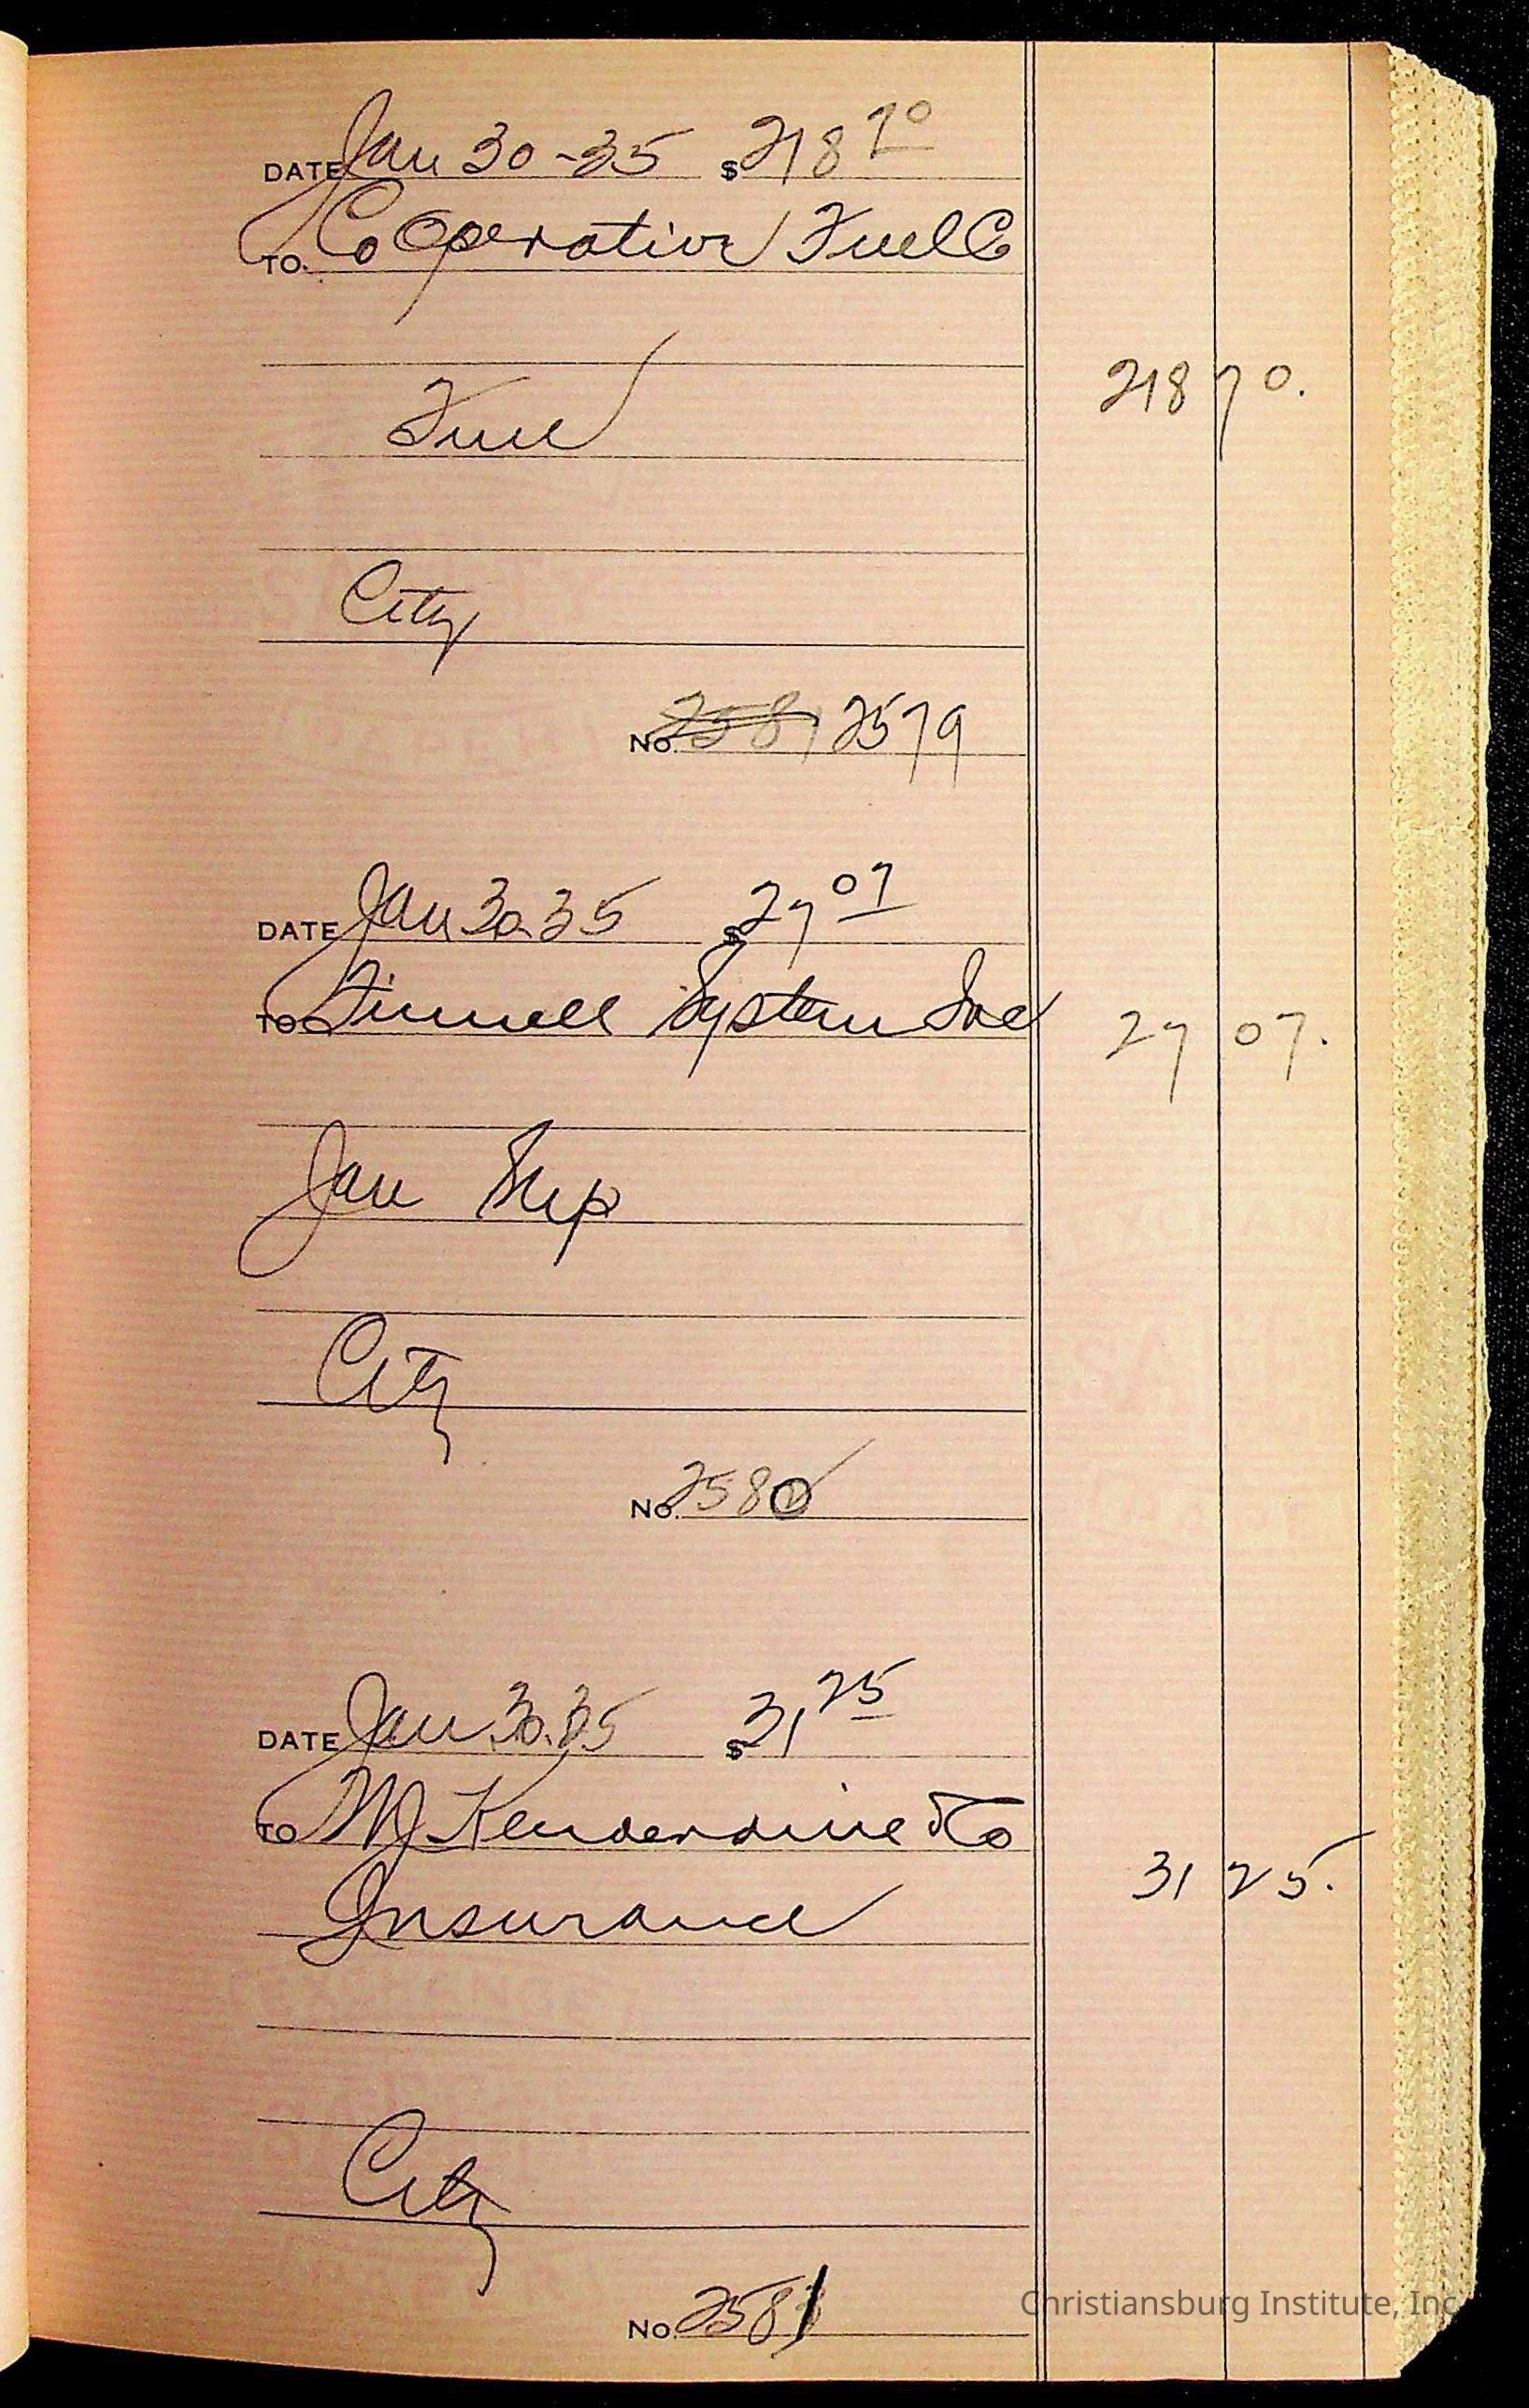 DATE Jan 30-35 $218 70
TO. CoOperative Fuel Co
Fuel
218 70.
City
No. 2581 2579
DATE Jan 30.35 $27 07
TO System Inc
27 07.
Jan Sup
City
No. 2580
DATE Jan.30.35 $31 25
TO Kenderdine & Co
31 25.
Insurance
City
No. 2581
Christiansburg Institute, Inc.